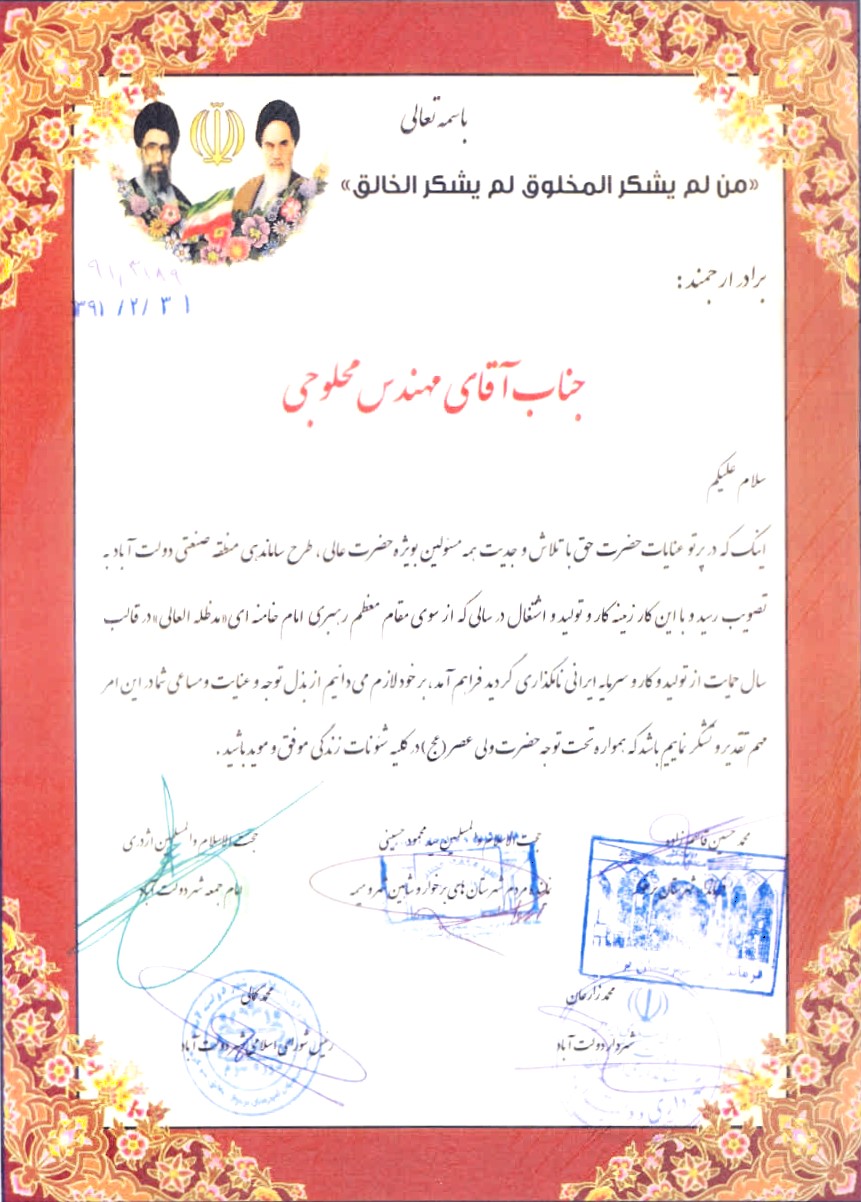 باسمه تعالی
«من لم یشکر المخلوق لم یشکر الخالق»
۹۱٫۳۱۸۹
۱۳۹۱/۲/۳۱
برادر ارجمند:
جناب آقای مهندس محلوجی
سلام علیکم
اینک که در پرتو عنایات حضرت حق با تلاش و جدیت همه مسئولین بویژه حضرت عالی، طرح ساماندهی منطقه صنعتی دولت آباد به
تصویب رسید و با این کار زمینه کار و تولید و اشتغال در سالی که از سوی مقام معظم رهبری امام خامنه ای «مدظله العالی» در قالب
سال حمایت از تولید و کار و سرمایه ایرانی نامگذاری گردید فراهم آمد، بر خود لازم می دانیم از بذل توجه و عنایت و مساعی شما در این امر
مهم تقدیر و تشکر نماییم باشد که همواره تحت توجه حضرت ولی عصر (عج) در کلیه شئونات زندگی موفق و موید باشید.
محمد حسین قاسم زاده
شهرستان برخوار
حجت الاسلام والمسلمین سید محمود حسینی
نماینده مردم شهرستان های برخوار و شاهین شهر و میمه
حجت الاسلام والمسلمین اژدری
امام جمعه شهر دولت آباد
محمد زارعان
شهردار دولت آباد
محمد کمالی
رئیس شورای اسلامی شهر دولت آباد